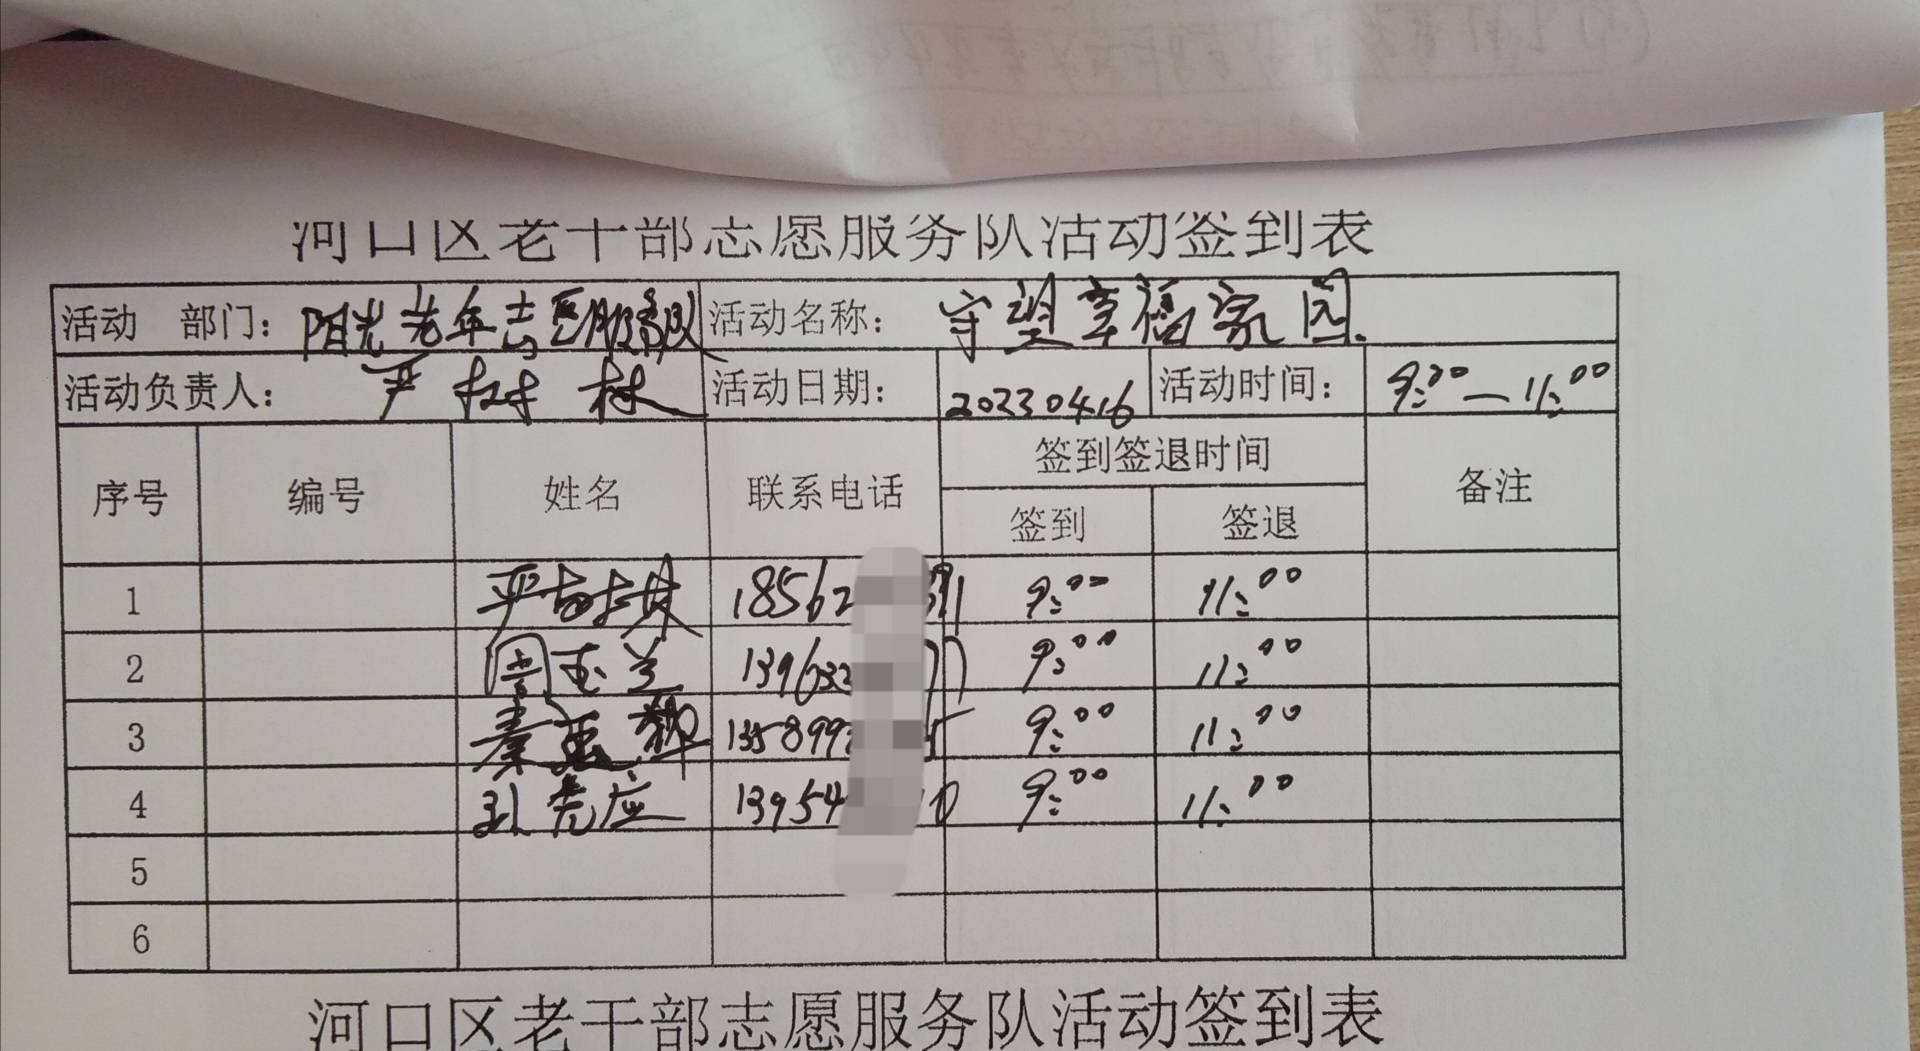 河口区老干部志愿服务队活动签到表
活动 部门: 阳光老年志愿服务队 活动名称: 守望幸福家园.
活动负责人: 严树林 活动日期: 20230416 活动时间: 9:00—11:00
序号 编号 姓名 联系电话 签到签退时间 备注
签到 签退
1 严树林 18562 91 9:00 11:00
2 周玉兰 139632 9:00 11:00
3 秦 135899 5 9:00 11:00
4 孙亮应 13954 0 9:00 11:00
5
6
河口区老干部志愿服务队活动签到表